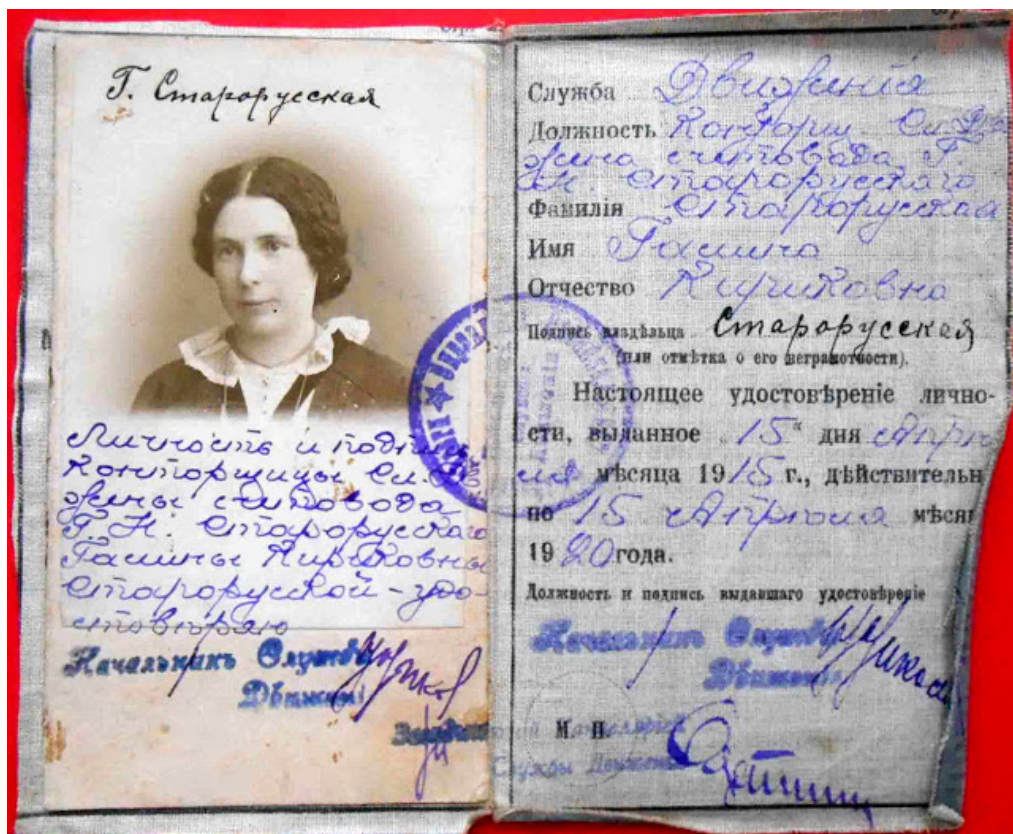 Г. Старорусская
Личность и подпись
Конторщицы Сл. Д
жены счетовода
Г. Н. Старорусскаго
Галины Кириковны
Старорусской - удо-
стовѣряю
Начальникъ Службы
Движенія
Служба Движенія
Должность Конторщ. Сл. Дв.
жена счетовода Г.
Н. Старорусскаго
Фамилія Старорусская
Имя Галина
Отчество Кириковна
Подпись владѣльца Старорусская
(или отмѣтка о его неграмотности).
Настоящее удостовѣреніе лично-
сти, выданное „15“ дня Апрѣ
ля мѣсяца 1915 г., дѣйствительн
по 15 Апрѣля мѣсяц
1920 года.
Должность и подпись выдавшаго удостовѣреніе
Начальникъ Службы
Движенія
М. П.
Канцеляріей
Службы Движенія